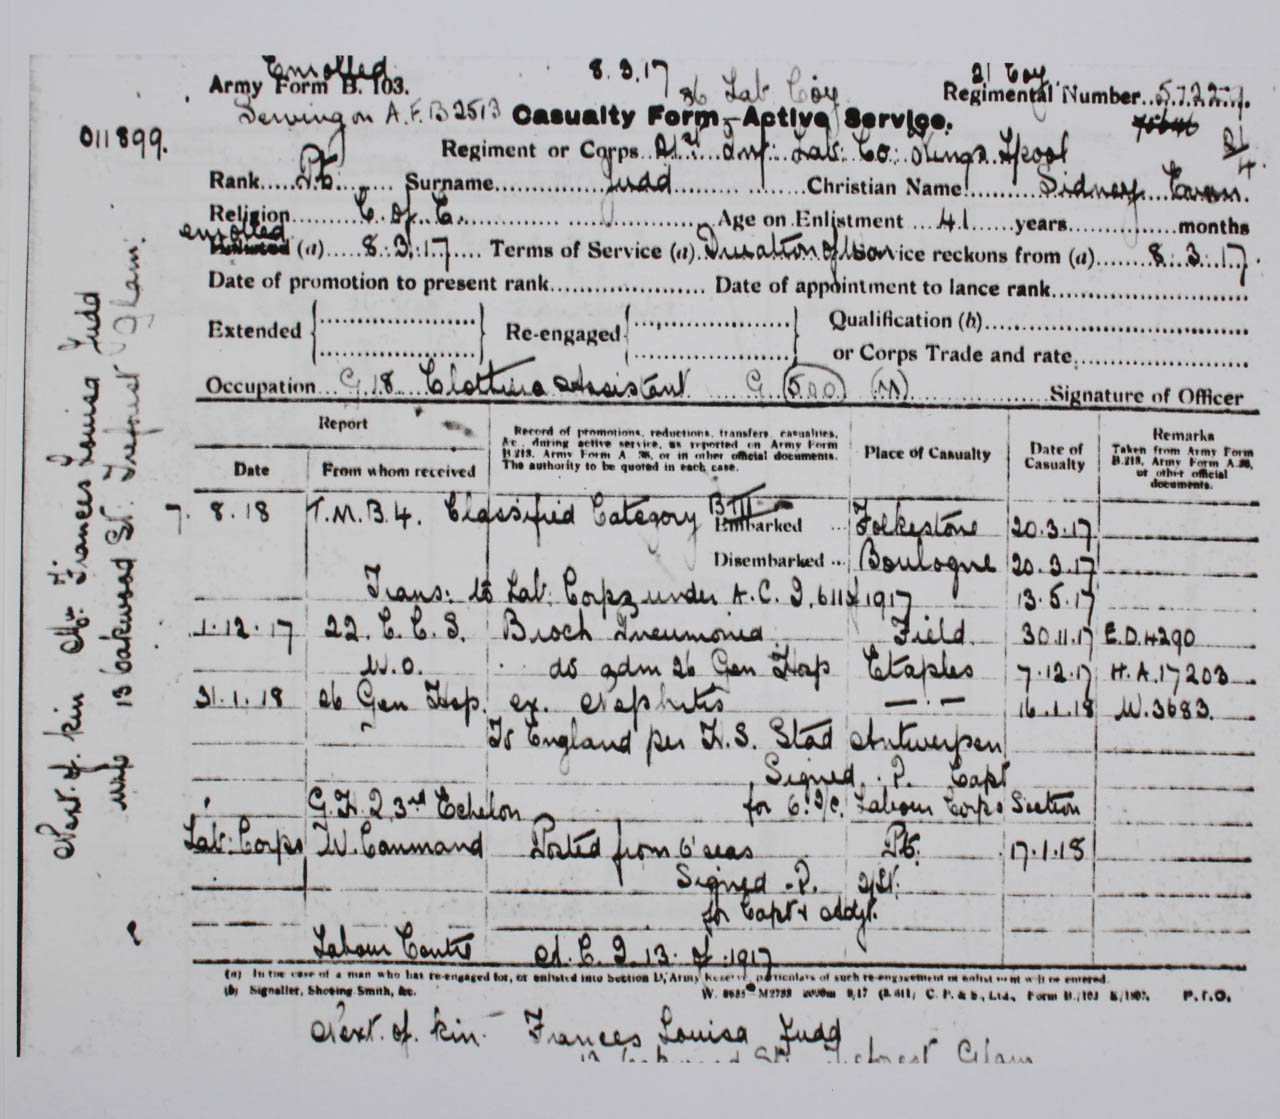 Enrolled 8.3.17 21 Coy
Army Form B. 103. 86 Lab Coy Regimental Number 57227
Serving on A.F.B 2513 Casualty Form—Active Service.
011899.
Regiment or Corps Inf. Lab. Co. Kings L'pool
Rank Pte. Surname Judd Christian Name Sidney
Religion C of E. Age on Enlistment 41 years months
enrolled (a) 8.3.17 Terms of Service (a) Duration of War Service reckons from (a) 8.3.17
Date of promotion to present rank Date of appointment to lance rank
Extended { } Re-engaged { } Qualification (b)
or Corps Trade and rate
Occupation G 18 Clothing Assistant G 500 M Signature of Officer
Report
Record of promotions, reductions, transfers, casualties, &c., during active service, as reported on Army Form B.213, Army Form A.36, or in other official documents. The authority to be quoted in each case.
Place of Casualty
Date of Casualty
Remarks
Taken from Army Form B.213, Army Form A.36, or other official documents.
Date From whom received
7.8.18 T.M.B.4. Classified Category B III
Embarked Folkestone 20.3.17
Disembarked Boulogne 20.3.17
Trans: to Lab: Corps under A.C.I. 1917 13.5.17
1.12.17 22 C.C.S. Broch Pneumonia Field 30.11.17 E.D.4290
W.O. do adm 26 Gen Hosp Etaples 7.12.17 H.A.17203
31.1.18 26 Gen Hosp. ex. Nephritis — . — 16.1.18 W.3683.
To England per H.S. Stad Antwerpen
Signed . P. Capt
G.H.Q 3rd Echelon for O. I/C. Labour Corps Section
Lab: Corps W. Command Posted from O'seas Pte. 17.1.18
Signed . P. Lt.
for Capt & Adjt.
Labour Centre A.C.I. 13 of 1917
(a) In the case of a man who has re-engaged for, or enlisted into Section D, Army Reserve, particulars of such re-engagement or enlistment will be entered.
(b) Signaller, Shoeing-Smith, &c. Form B./103 P.T.O.
Next of kin Frances Louisa Judd
13 Oakwood St. Treforest Glam
Next of kin Mrs Frances Louisa Judd
wife 13 Oakwood St. Treforest Glam.